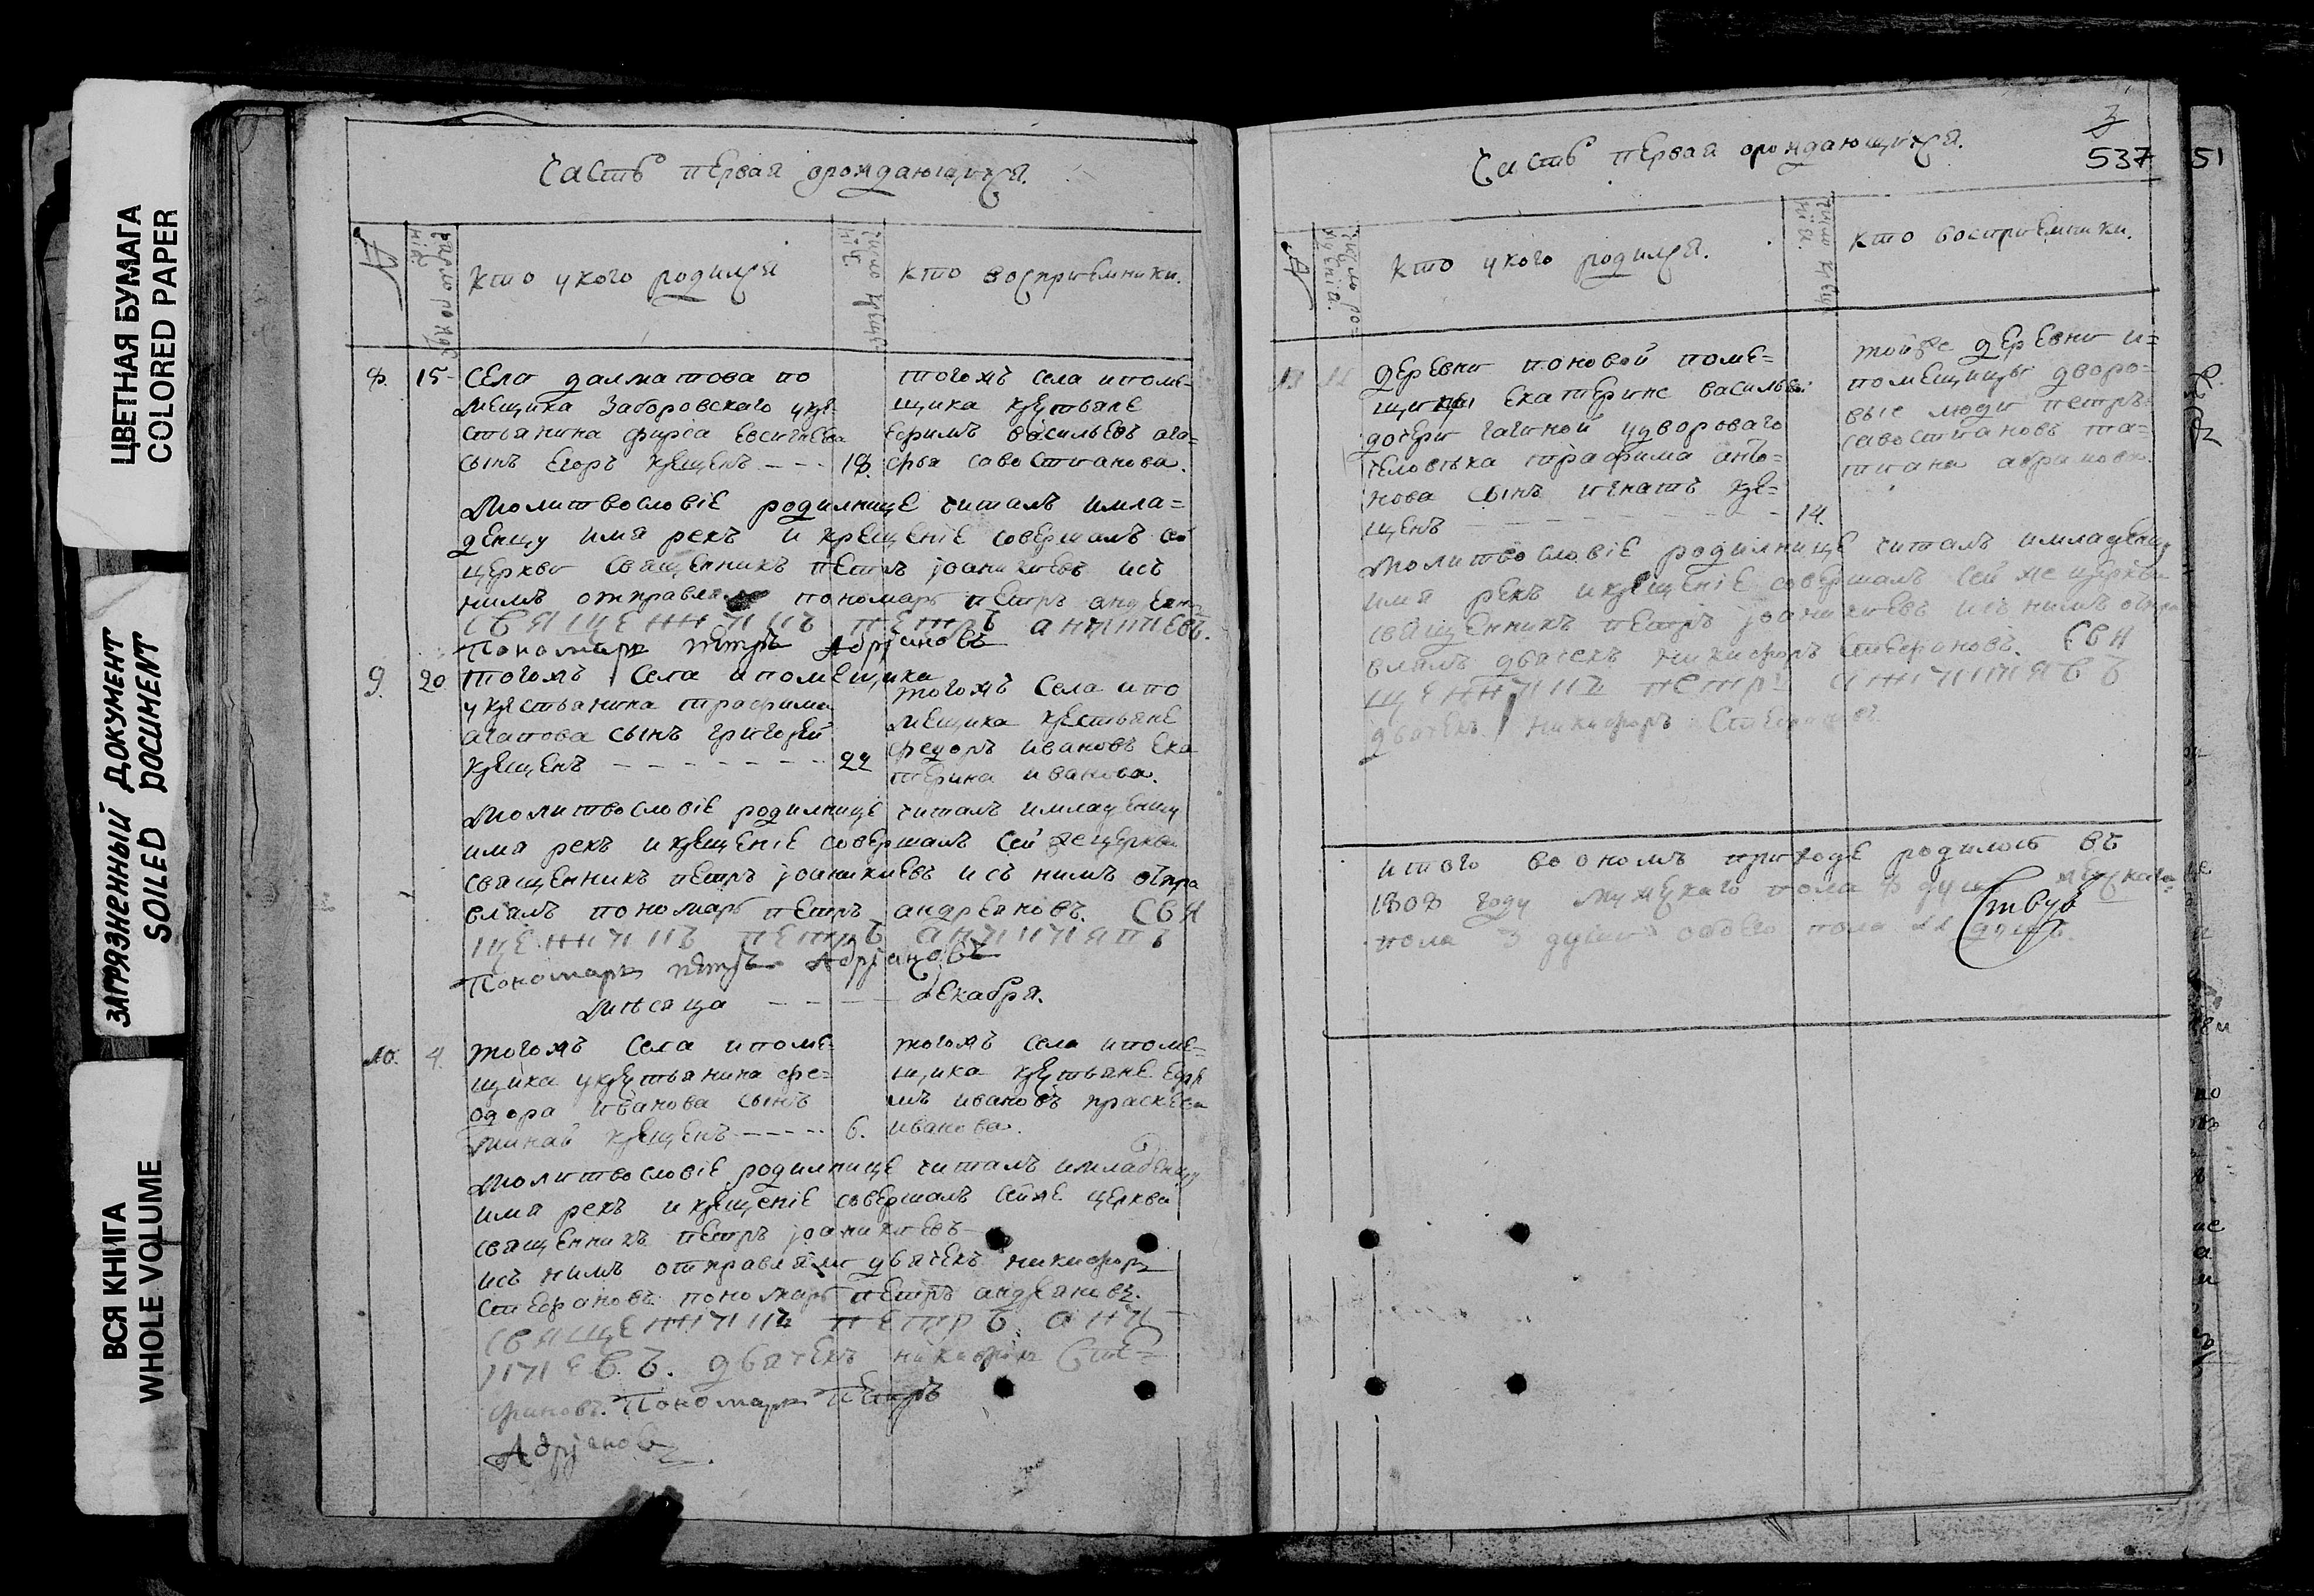 ЦВЕТНАЯ БУМАГА
COLORED PAPER
ЗАГРЯЗНЕННЫЙ ДОКУМЕНТ
SOILED DOCUMENT
ВСЯ КНИГА
WHOLE VOLUME
Часть первая орождающихся.
№
число рожде
нія
кто укого родился
число креще
нія
кто восприемники.
8. 15
села далматова по
мещика Заборовскаго укре
стьянина фирса Евсигнѣева
сынъ Егоръ крещенъ - - - 18.
тогожъ села ипоме-
щика крестьяне
Ефимъ васильевъ ага=
фья савостианова.
Молитвословіе родилнице читалъ имла=
денцу имя рекъ и крещеніе совершалъ сей
церкви священникъ петръ іоаникиевъ исъ
нимъ отправлял пономарь петръ андреян
священникъ петръ аникиевъ.
Пономарь петръ Адріановъ
9. 20
тогожъ села ипомещика
укрестьянина трафима
агапова сынъ григорей
крещенъ - - - - - - - 22
тогожъ села ипо
мещика крестьяне
федоръ ивановъ ека
терина иванова.
Молитвословіе родилнице читалъ имладенцу
имя рекъ икрещеніе совершалъ сей же церкви
священникъ петръ іоаникиевъ исъ нимъ отпра
влялъ пономарь петръ андреяновъ. свя
щенникъ петръ аникиявъ
Пономарь петръ Адріановъ
Месяца - - - - - декабря.
10. 4.
тогожъ села ипоме-
щика укрестьянина фе=
одора иванова сынъ
минай крещенъ - - - - - 6.
тогожъ села ипоме-
щика крестьяне ефи
мъ ивановъ праскева
иванова.
Молитвословіе родилнице читалъ имладенцу
имя рекъ икрещеніе совершалъ сейже церкви
священникъ петръ іоаникиевъ
исъ нимъ отправляли дьячекъ никифоръ
стефановъ пономарь петръ андреяновъ.
священникъ петръ ани
киевъ. дьячекъ никифоръ Сте=
фановъ. Пономарь Петръ
Адріановъ.
Часть первая орождающихся.
3
537
51
№
число ро=
жденія.
кто укого родился.
число креще
нія.
кто восприемники.
11
деревни поповой поме=
щицы екатерине васильевой
дочери гагиной удвороваго
человѣка трафима анто=
нова сынъ игнатъ кре=
щенъ - - - - - - - - 14.
тойже деревни и=
помещицы дворо=
выс люди петръ
савостиановъ та=
тиана абрамова.
Молитвословіе родилнице читалъ имладенцу
имя рекъ икрещеніе совершалъ сей же церкви
священникъ петръ іоаникиевъ исъ нимъ отпра
влялъ дьячекъ никифоръ стефановъ. Свя
щенникъ петръ аникиявъ
дьячекъ никифоръ Стефановъ
итого во ономъ приходе родилось въ
1808 году мужескаго пола 8 душъ женскаго
пола 3 души обоего пола 11 душъ.